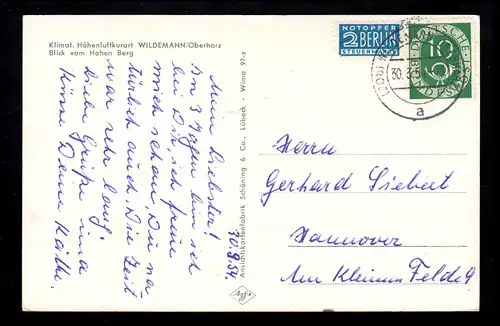 Klimat. Höhenluftkurort WILDEMANN/Oberharz
Blick vom Hohen Berg
Mein Liebster!
In 3 Tagen bin ich
bei Dir, ich freue
mich schon, Du na-
türlich auch. Die Zeit
war sehr lang.
Viele Grüße und
Küsse Deine Käthe.
30.8.54
Ansichtskartenfabrik Schöning & Co., Lübeck - Wilma 97-z
Agfa
NOTOPFER
2 BERLIN
STEUERMARKE
DEUTSCHE
10
30.8
a
Herrn
Gerhard Siebert
Hannover
Am Kleinen Felde 9